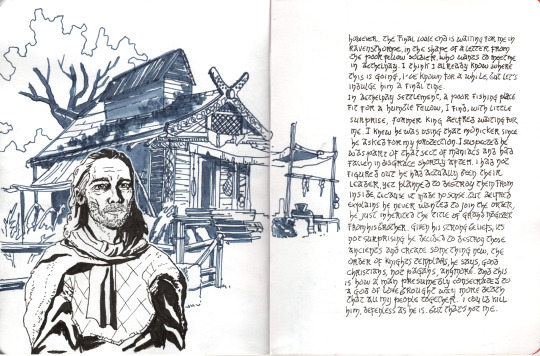 however, the final loose end is waiting for me in
Ravensthorpe, in the shape of a letter from
the poor fellow soldier, who wants to meet me
in Aethelnay. I think I already know where
this is going, I've known for a while, but let's
indulge him a final time.
In Aethelnay settlement, a poor fishing place
fit for a humble fellow, I find, with little
surprise, former king Aelfred waiting for
me. I knew he was using that monicker since
he asked for my protection. I suspected he
was part of that sect of maniacs and had
fallen in disgrace shortly after. I had not
figured out he had actually been their
leader, yet planned to destroy them from
inside, because it made no sense. But Aelfred
explains he never wanted to join the order,
he just inherited the title of Grand Maegester
from his brother. Given his strong beliefs, it's
not surprising he decided to destroy those
ancients and create something new, the
order of Knights Templars, he says, good
christians, not pagans, anymore. And this
is how a man presumedly consecrated to
a god of love brought way more death
that all my people together. I could kill
him, defenless as he is. But that's not me.